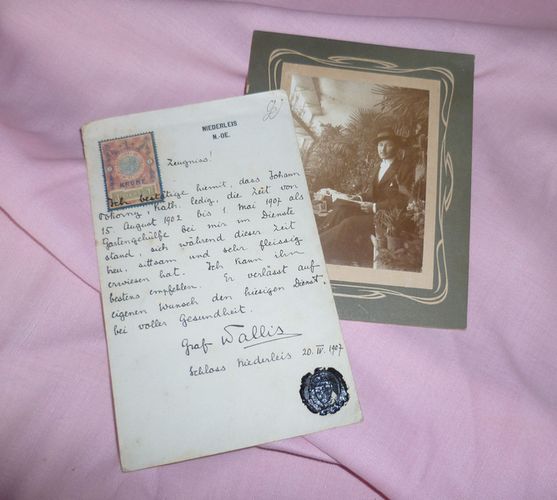 NIEDERLEIS
N.-OE.
KRONE
Zeugniss!
Ich bestätige hiemit, dass Johann
Pokorny, Kath. ledig, die Zeit von
15. August 1902 bis 1. Mai 1907 als
Gartengehülfe bei mir im Dienste
stand, sich während dieser Zeit
treu, sittsam und sehr fleissig
erwiesen hat. Ich kann ihn
bestens empfehlen. Er verlässt auf
eigenen Wunsch den hiesigen Dienst,
bei voller Gesundheit.
Graf Wallis
Schloss Niederleis 20. IV. 1907